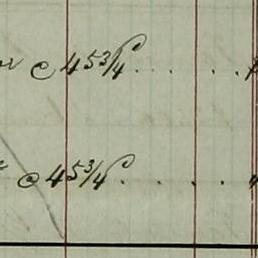 @ 45 3/4 ¢ . . . . . .
@ 45 3/4 ¢ . . . .